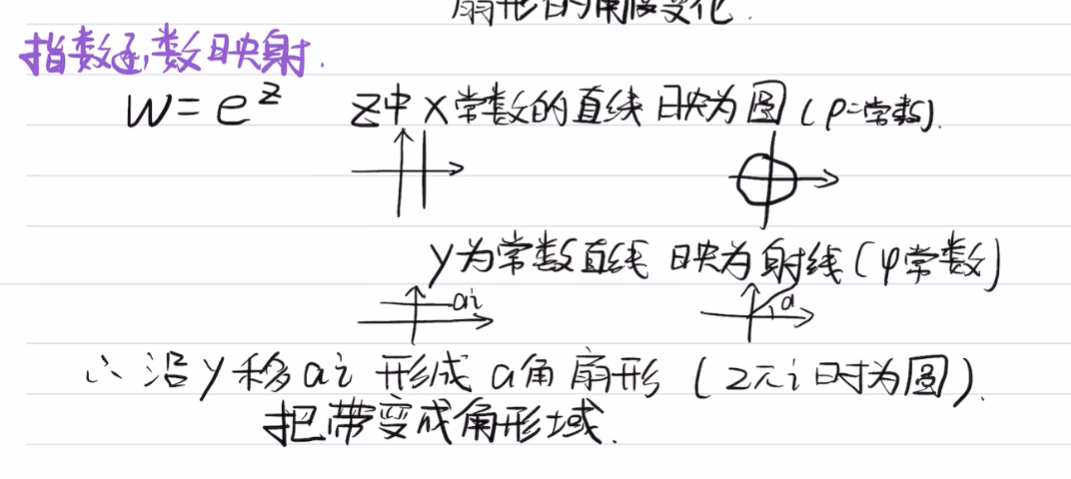 扇形的角度变化.
指数函数映射.
W=e^z z中x常数的直线 映为圆(ρ=常数).
y为常数直线 映为射线(φ常数)
ai a
∴ 沿y移ai 形成a角扇形 (2πi时为圆).
把带变成角形域.